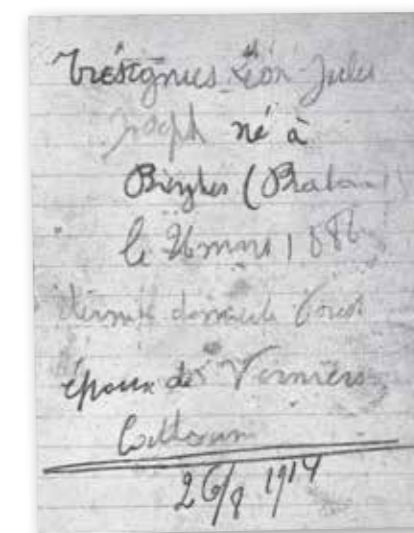 Trésignies Léon Jules
Joseph né à
Bierghes (Brabant)
le 26 mars 1886
dernier domicile
époux de Vermeiers
26/8 1914